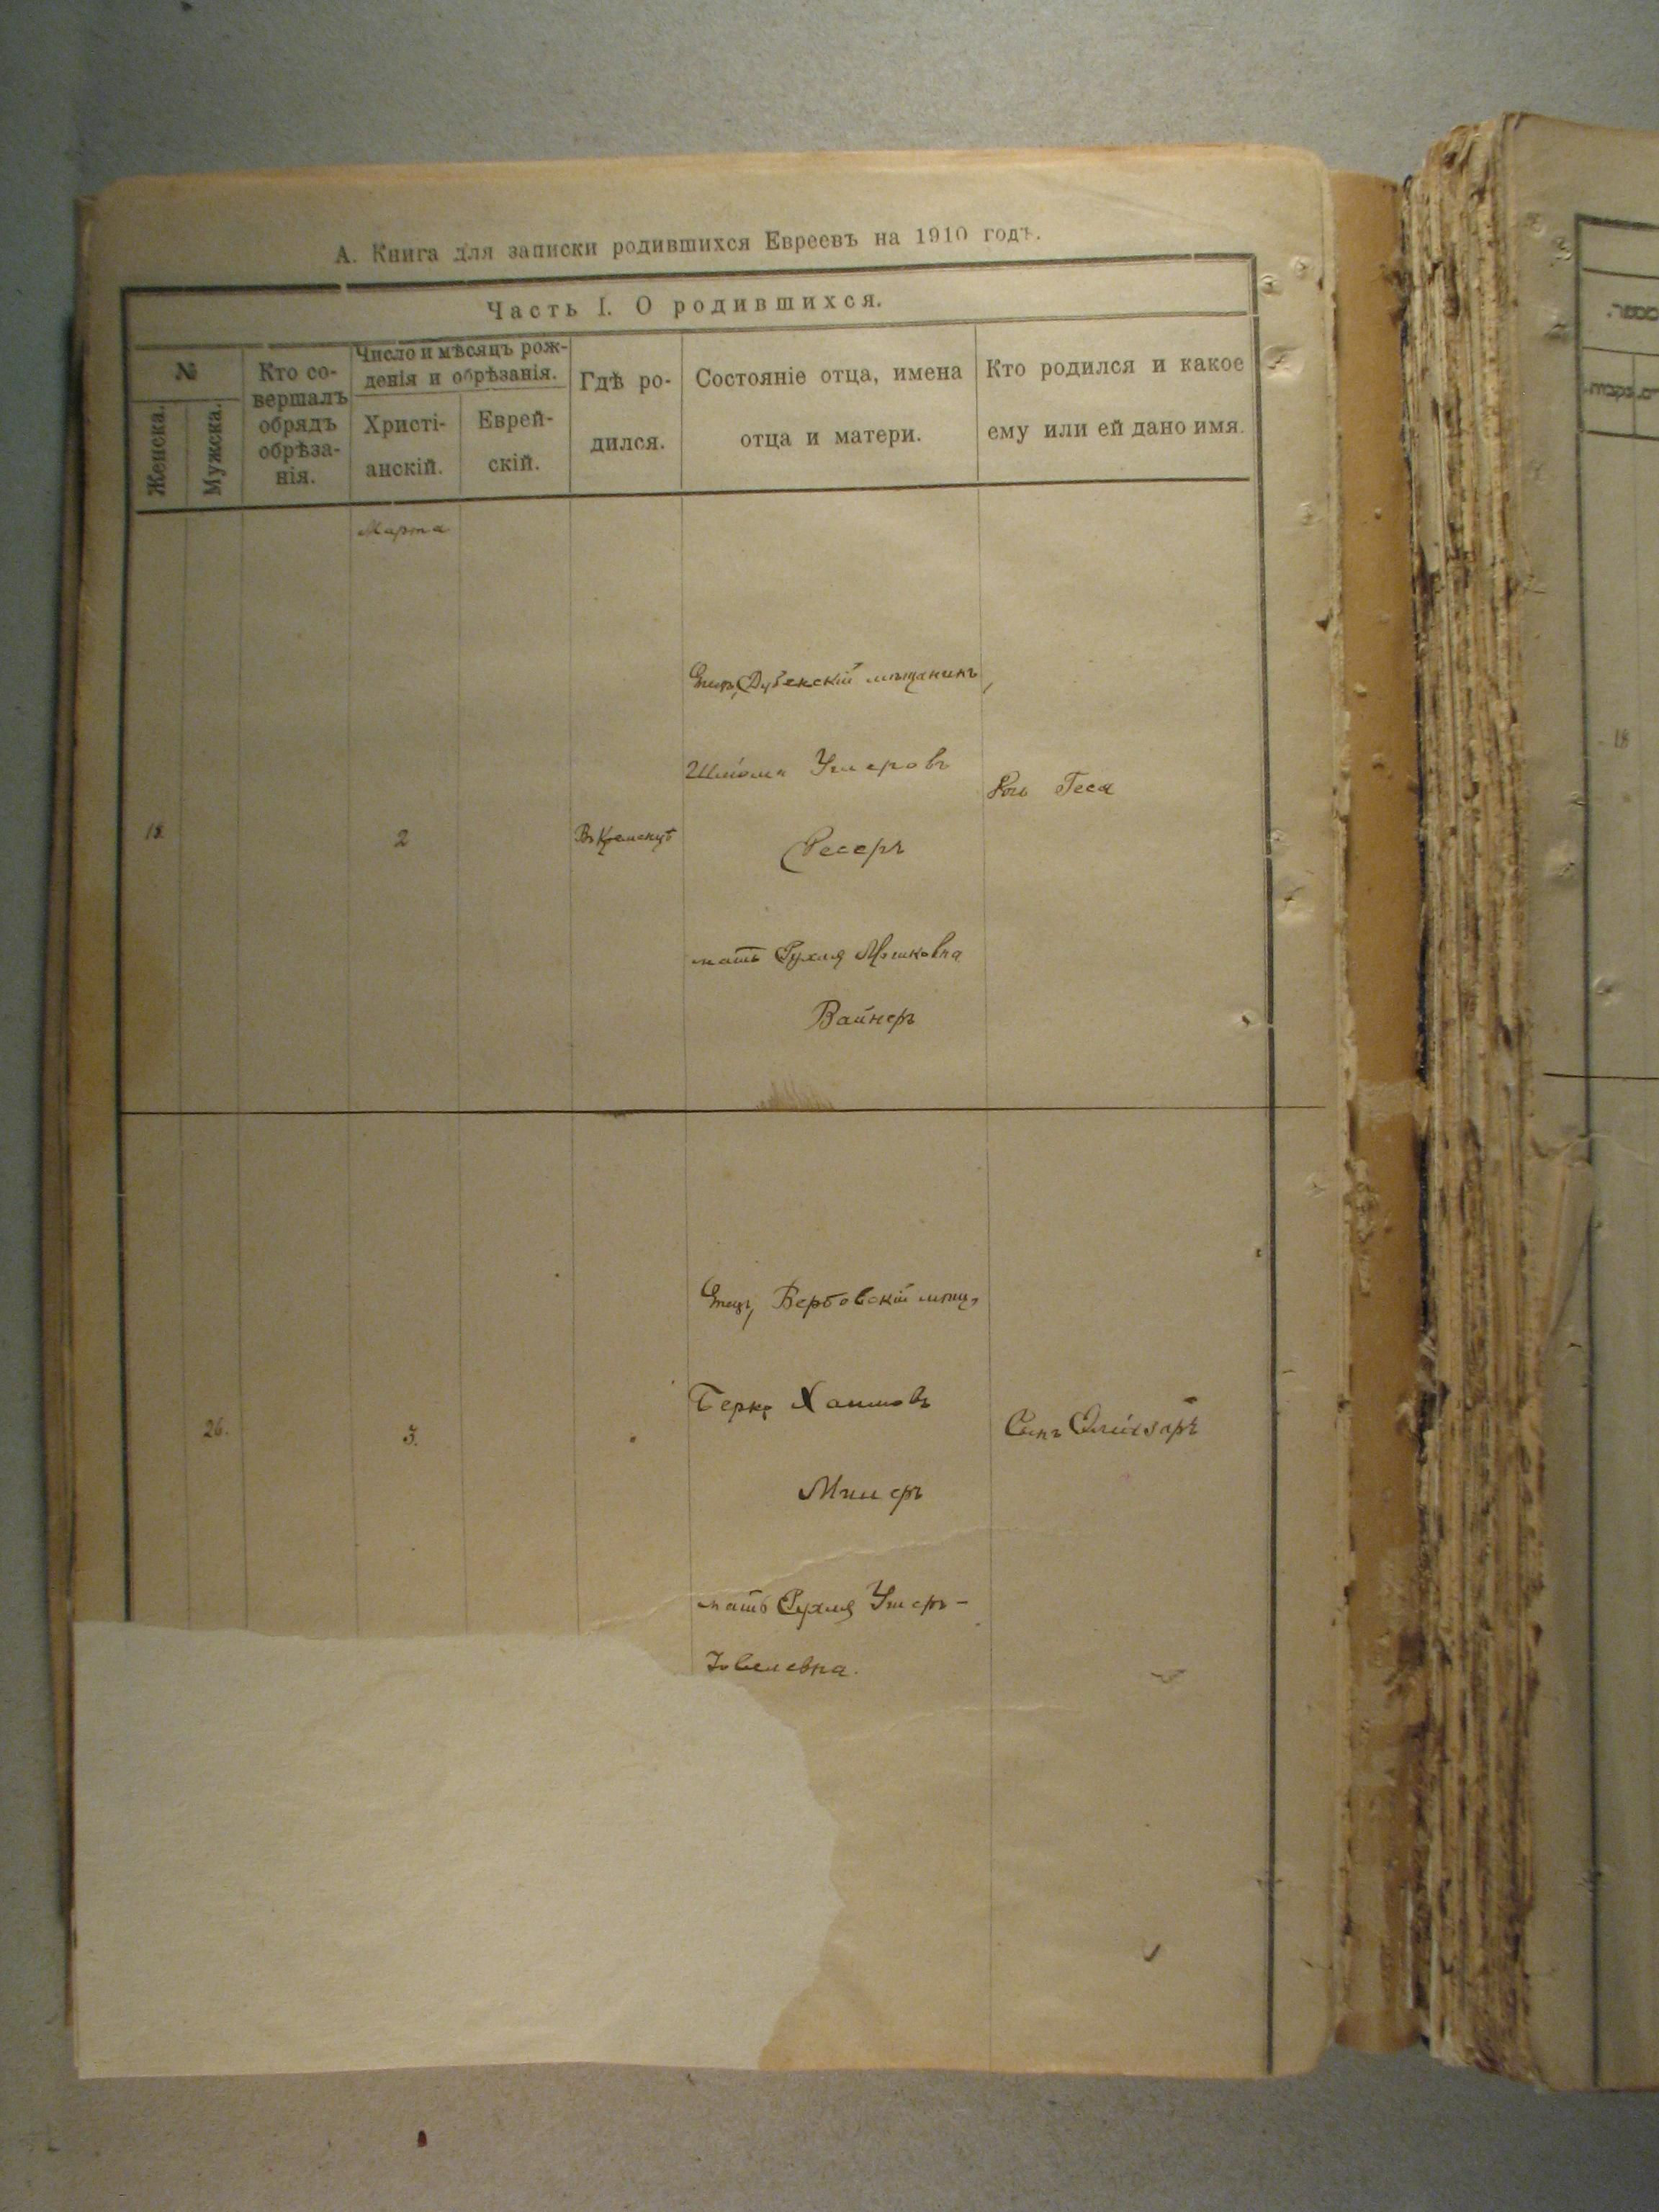 А. Книга для записки родившихся Евреевъ на 1910 годъ.
Часть I. О родившихся.
№
Женска.
Мужска.
Кто со-
вершалъ
обрядъ
обрѣза-
нія.
Число и мѣсяцъ рож-
денія и обрѣзанія.
Христі-
анскій.
Еврей-
скій.
Гдѣ ро-
дился.
Состояніе отца, имена
отца и матери.
Кто родился и какое
ему или ей дано имя.
Марта
18.
2
Въ Кременцѣ
Отецъ, Дубенскій мѣщанинъ,
Шлома Ушеровъ
Ресеръ
мать Рухля Мошковна
Вайнеръ
Дочь Геся
26.
3.
Отецъ, Вербовскій мѣщ.
Берко Хаимовъ
мать Рухля Ушеръ-
Іовелевна.
Сынъ Элiезаръ
18